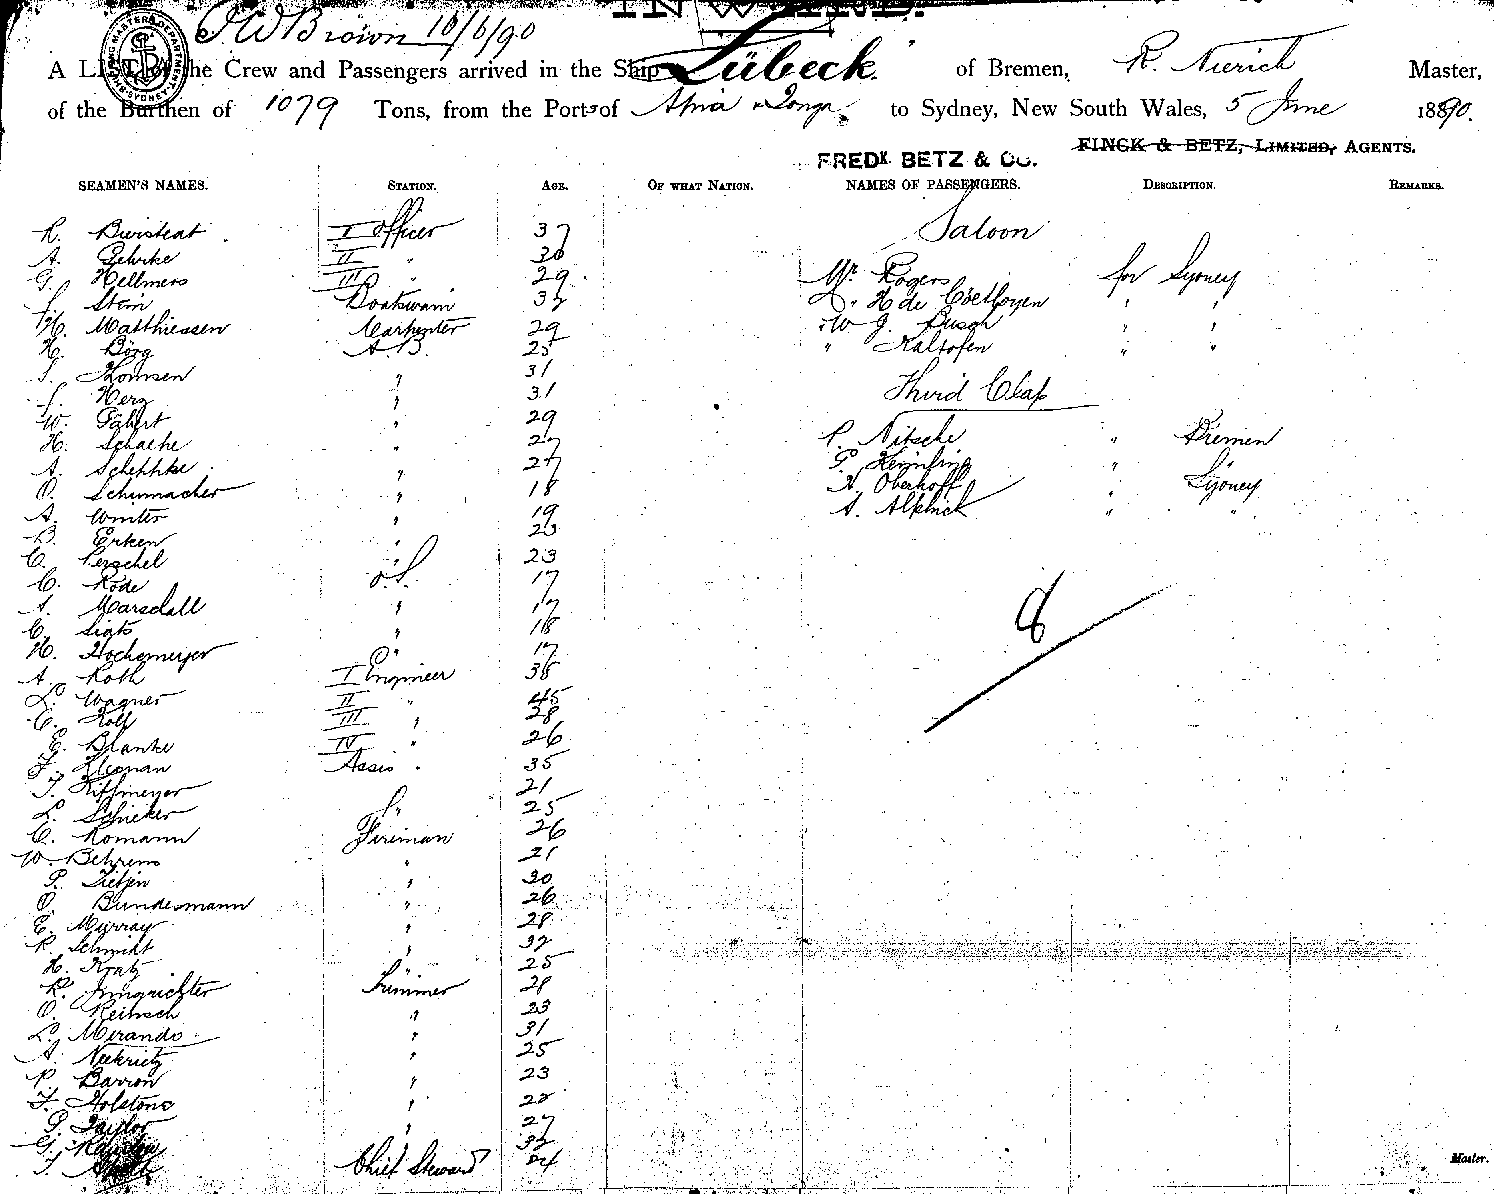 INWARD.
J W Brown 16/6/90
SHIPPING MASTER'S DEPARTMENT SYDNEY
A LIST of the Crew and Passengers arrived in the Ship Lübeck of Bremen, R. Nierich Master,
of the Burthen of 1079 Tons, from the Ports of Apia & Tonga to Sydney, New South Wales, 5 June 1890.
FREDK. BETZ & CO. FINCK & BETZ, LIMITED, AGENTS.
SEAMEN'S NAMES. STATION. AGE. OF WHAT NATION. NAMES OF PASSENGERS. DESCRIPTION. REMARKS.
Saloon
R. I Officer 37
A. Gehrke II " 30
G. Hellmers III " 29 Mr. Rogers for Sydney
Stein Boatswain 32 " H de " "
H. Matthiessen Carpenter 29 " " "
H. Börg A.B. 25 " Kaltofen " "
Thomsen " 31
Herz " 31 Third Class
W. " 29
H. " 27 P. Nitsche " Bremen
A. Scheppke " 27 "
O. Schumacher " 18 A. Oberhoff " Sydney
A. Winter " 19 A. " "
B. Erken " 23
C. Perschel " 23
C. Rode O.S. 17
A. Marsdall " 17
C. " 18 8
H. Hochemeyer " 17
A. Roth I Engineer 38
L. Wagner II " 45
C. Rolf III " 28
E. Blanke IV " 26
F. Assis " 35
F. 21
L. Schicker " 25
C. Romann Fireman 26
W. Behrens " 21
P. Tietjen " 30
O. Bundesmann " 26
E. Murray " 28
R. Schmidt " 32
H. Kratz " 25
R. Jungrichter Trimmer 28
O. " 23
L. Mirando " 31
A. " 25
P. Barron " 23
F. " 22
G. Taylor " 27
G. " 32
Chief Steward 24
Master.